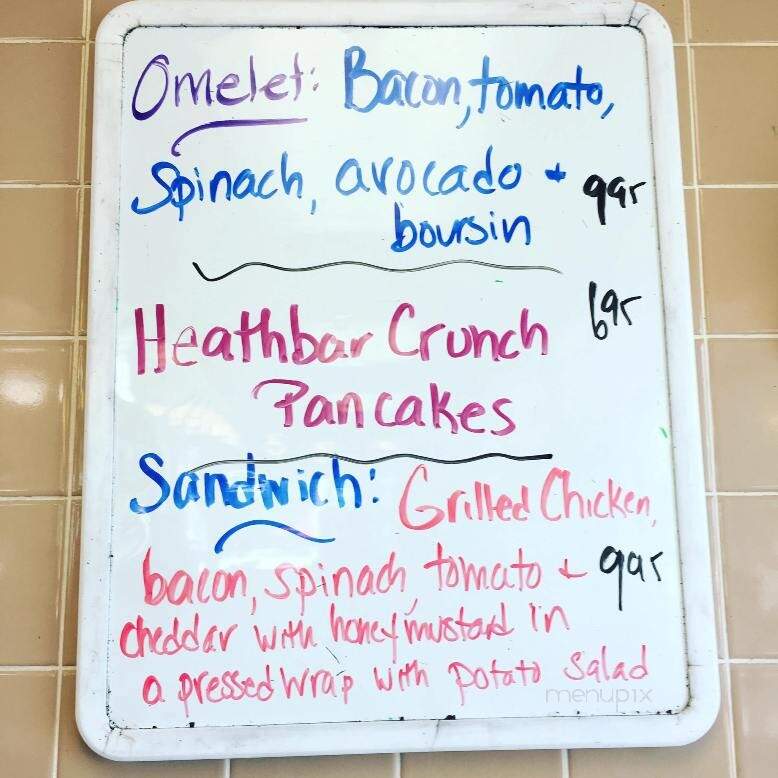 Omelet: Bacon, tomato,
Spinach, avocado + 9 95
boursin
Heathbar Crunch 6 95
Pancakes
Sandwich: Grilled Chicken,
bacon, spinach, tomato + 9 95
cheddar with honey mustard in
a pressed wrap with potato salad
menupix